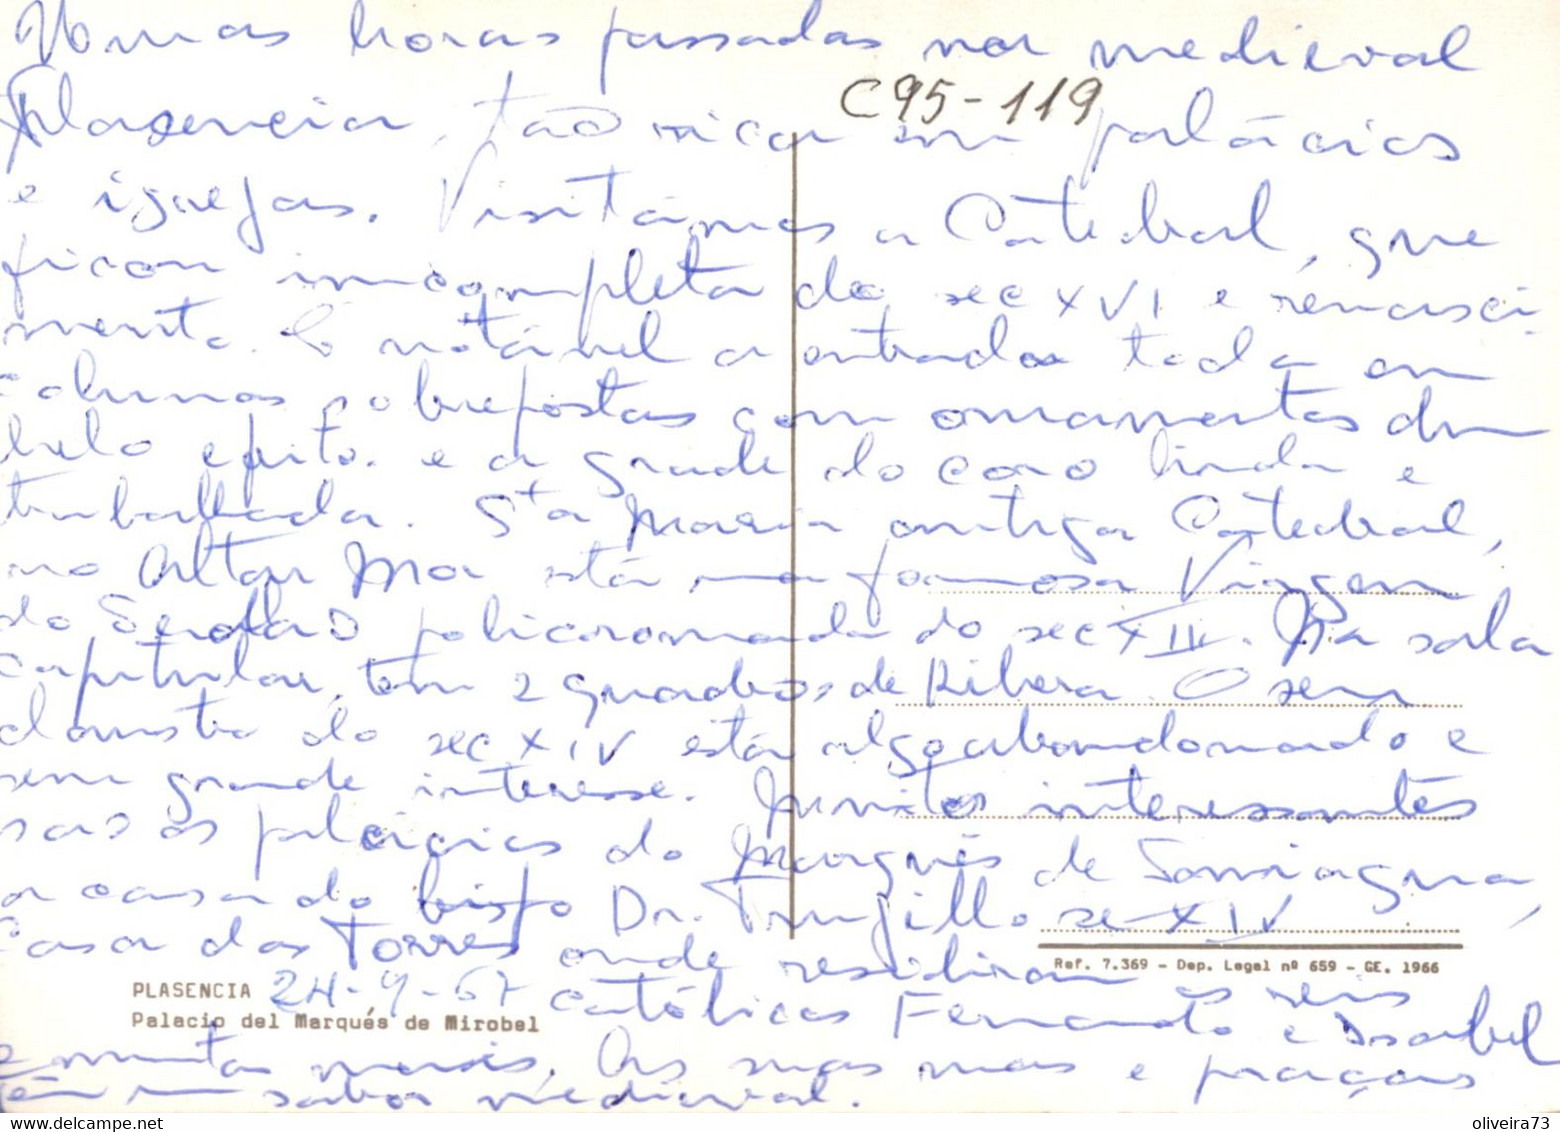 Umas horas passadas na medieval
C95-119
Plasencia, tão rica em palácios
e igrejas. Visitámos a Catedral, que
ficou incompleta do sec XVI e renasci-
mento. É notável a entrada toda em
colunas sobrepostas com ornamentos dum
belo efeito. e a grade do coro linda e
trabalhada. Sta Maria antiga Catedral,
no Altar Mor está a famosa Virgem
do Serdão policromada do sec XIII. Na sala
capitular, tem 2 quadros de Ribera. O seu
claustro do sec XIV está algo abandonado e
sem grande interesse. Muito interessantes
sas os palácios do Marquês de
a casa do bispo Dr. Trujillo sec XIV,
Casa das Torres onde residiram os reis
Ref. 7.369 - Dep. Legal nº 659 - GE. 1966
PLASENCIA 24-9-67 católicos Fernando e Isabel
Palacio del Marqués de Mirobel
e muita mais. As suas ruas e praças
têm um sabor medieval.
oliveira73